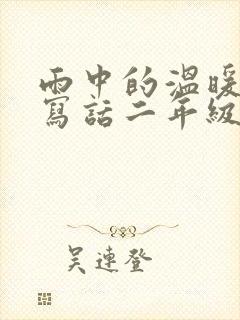 雨中的溫暖
寫話二年級
吳連登